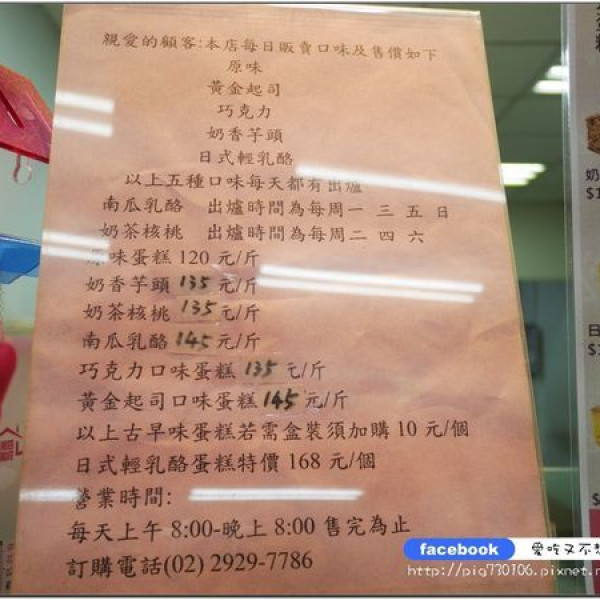 親愛的顧客:本店每日販賣口味及售價如下
原味
黃金起司
巧克力
奶香芋頭
日式輕乳酪
以上五種口味每天都有出爐
南瓜乳酪 出爐時間為每周一 三 五 日
奶茶核桃 出爐時間為每周二 四 六
原味蛋糕 120 元/斤
奶香芋頭 135 元/斤
奶茶核桃 135 元/斤
南瓜乳酪 145 元/斤
巧克力口味蛋糕 135 元/斤
黃金起司口味蛋糕 145 元/斤
以上古早味蛋糕若需盒裝須加購 10 元/個
日式輕乳酪蛋糕特價 168 元/個
營業時間:
每天上午 8:00-晚上 8:00 售完為止
訂購電話(02) 2929-7786
奶
$1
日
facebook 愛吃又不想
http://pig730106.pixnet.n